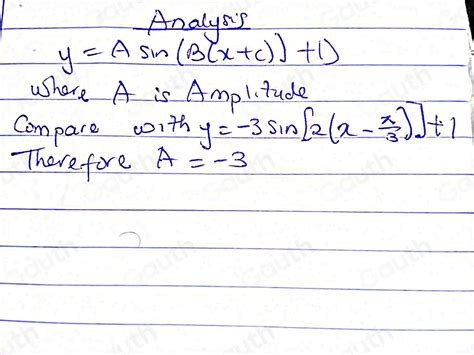 Analysis
y = A sin (B(x+c)) + 1)
where A is Amplitude
Compare with y = -3 sin [2(x - π/3)] + 1
Therefore A = -3